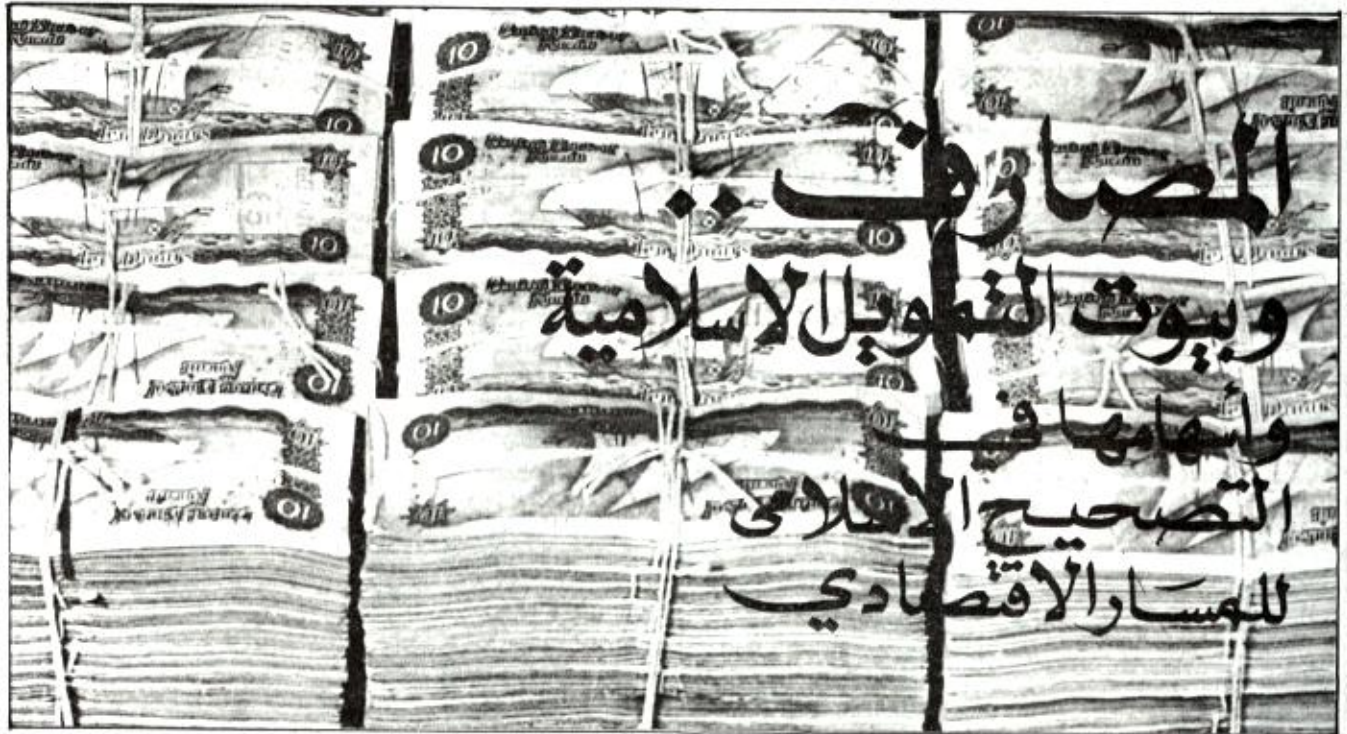 المصارف ..
وبيوت التمويل الاسلامية
وأسهامها في
التصحيح الاسلامى
للمسار الاقتصادي
10
Ten Dinars